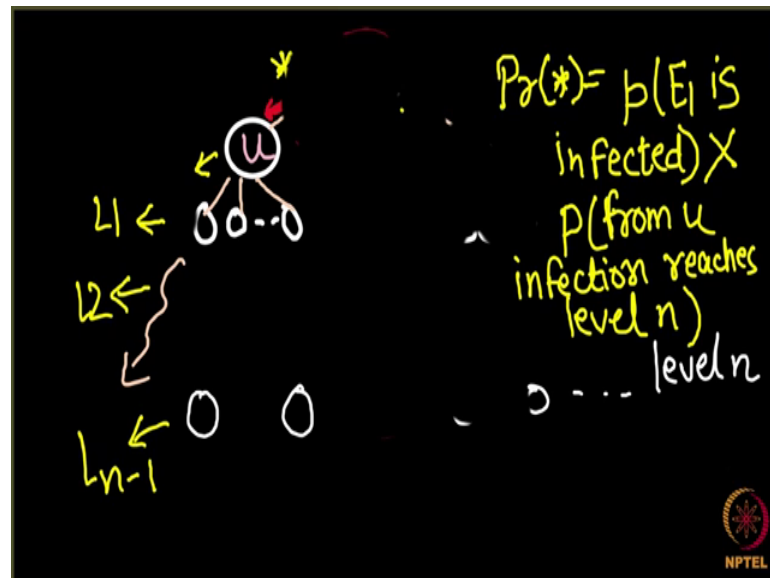 *
u
L1
L2
Ln-1
Pr(*)= p(E1 is
infected) X
p(from u
infection reaches
level n)
... level n
NPTEL